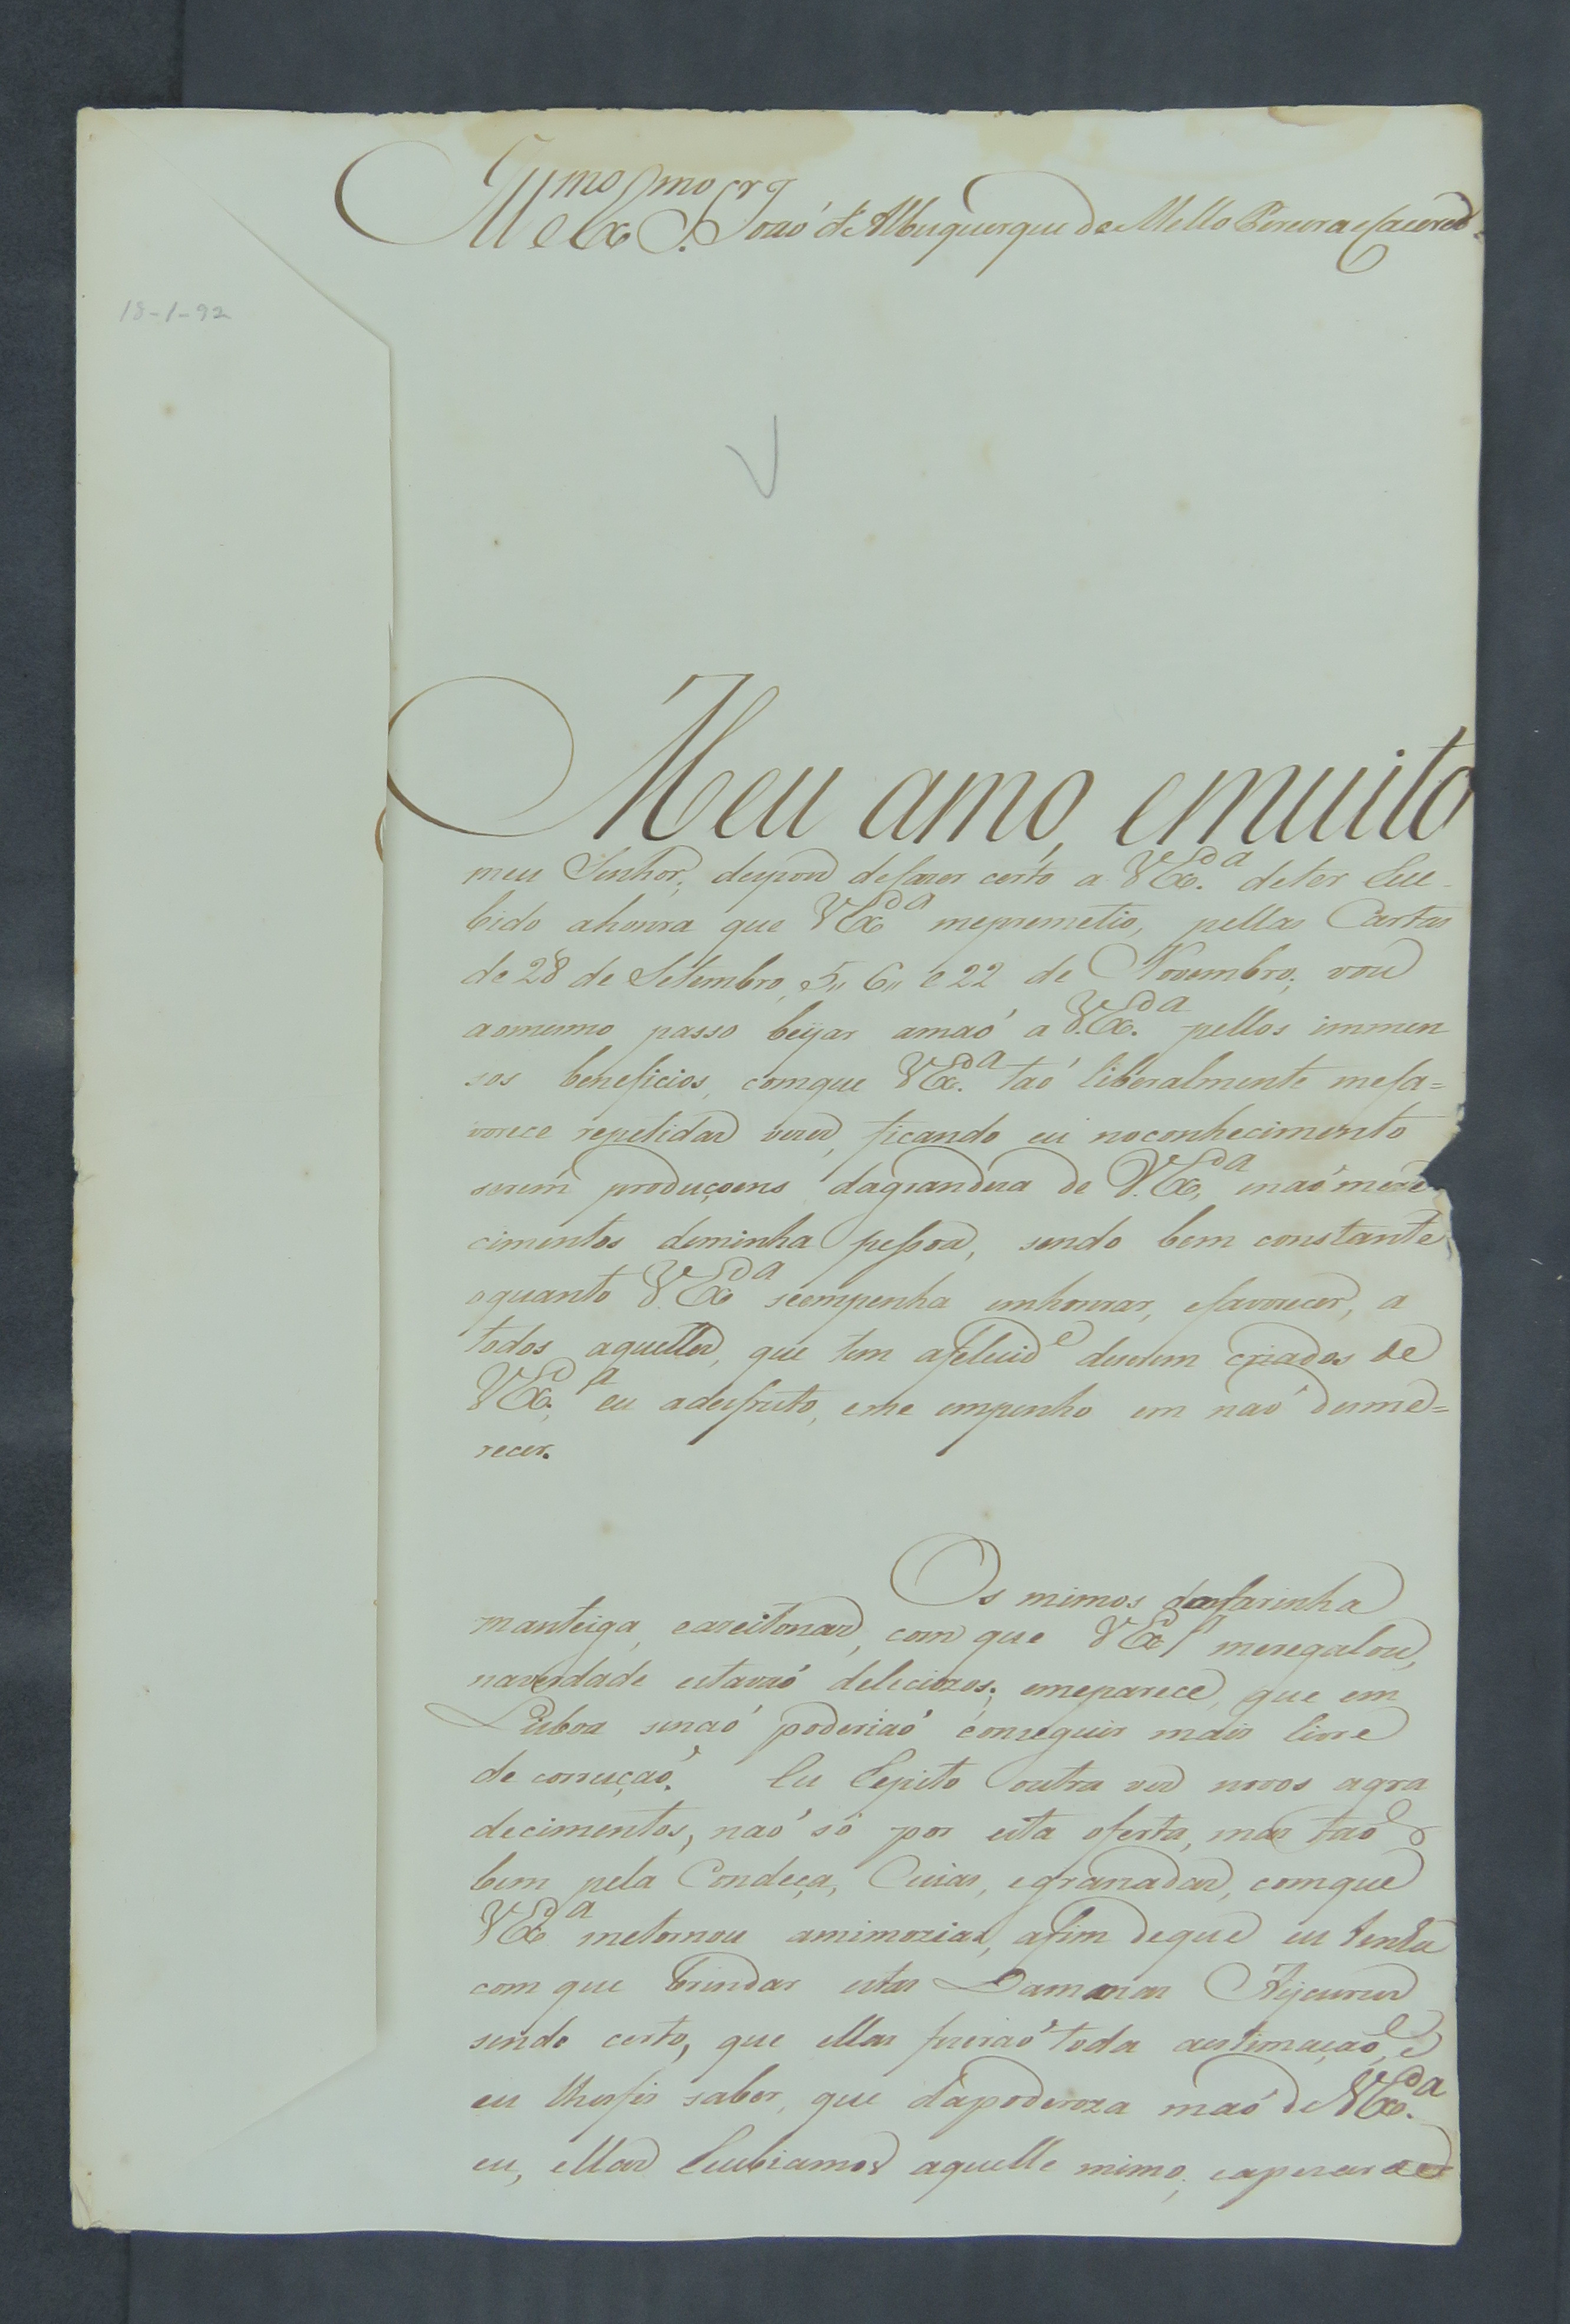 Ill.mo e Ex.mo S.r Joaó d'Albuquerque de Mello Pereira e Caceres.
18-1-92
Meu amo, emuito
meu Senhor, depois defazer certo a VEx.ª deter Rece-
bido ahonra que VEx.ª mepremetio, pellas Cartas
de 28 de Setembro, 5,, 6,, e 22 de Novembro; vou
aomesmo passo beijar amaó a V.Ex.ª pellos immen
sos beneficios, comque VEx.ª taó liberalmente mefa=
vorece repetidas vezes, ficando eu noconhecimento
serem produçoens dagrandeza de V.Ex.ª, enaó mere
cimentos deminha peßoa, sendo bem constante
oquanto V.Ex.ª seempenha emhonrar, efavorecer, a
todos aquelles, que tem afelecid.e deserem criados de
VEx.ª; eu adesfruto, eme empenho em naó desme=
recer.
Os mimos dasfarinha
manteiga, eazeitonas, com que VEx.ª meregalou,
naverdade estavaó deleciozos; emeparece, que em
Lisboa senaó poderiaó conseguir mais livre
de corruçaó. Eu Repito outra ves novos agra
decimentos, naó só por esta oferta, mas taó
bem pela Condeça, Cuias, egranadas, comque
VEx.ª metornou amimoziar, afim deque eu tenha
com que brindar estas Damas
sendo certo, que ellas fizeraó toda aestimaçaó, e
eu lhesfis saber, que dapoderoza maó de VEx.ª
eu, ellas Recebiamos aquelle mimo; eapezar